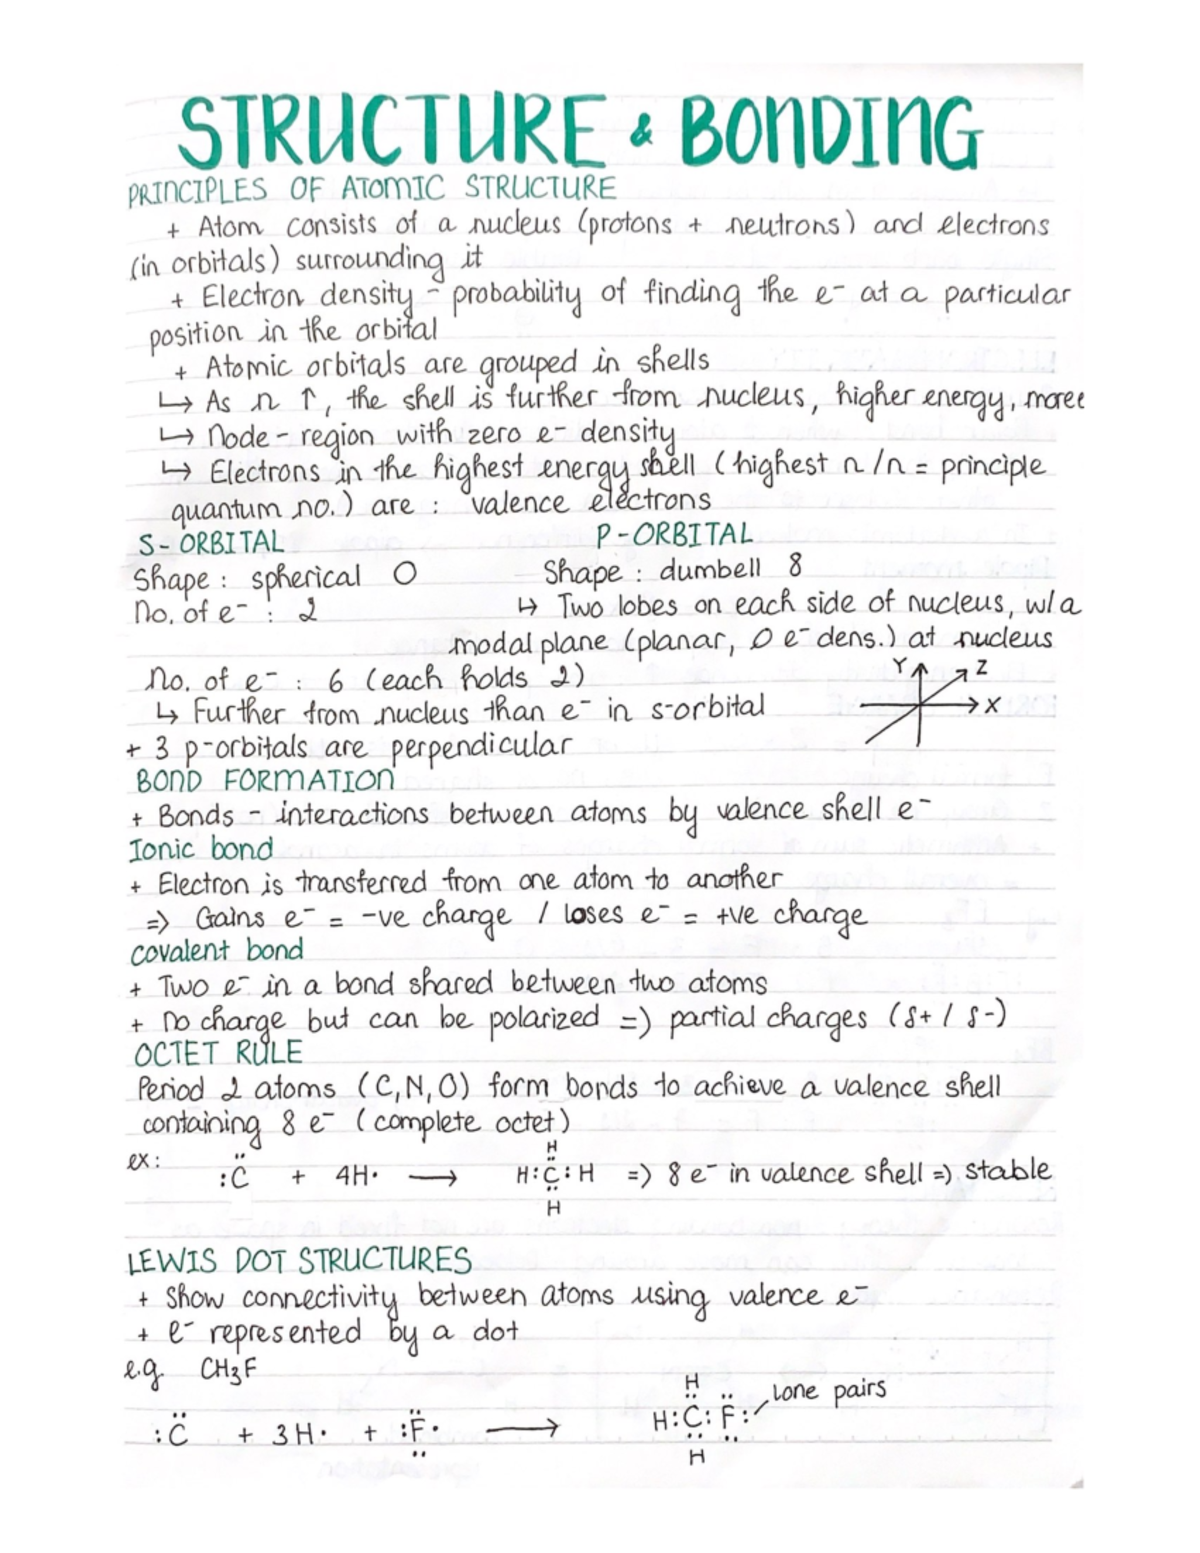 STRUCTURE & BONDING
PRINCIPLES OF ATOMIC STRUCTURE
+ Atom consists of a nucleus (protons + neutrons) and electrons
(in orbitals) surrounding it
+ Electron density - probability of finding the e⁻ at a particular
position in the orbital
+ Atomic orbitals are grouped in shells
↳ As n ↑, the shell is further from nucleus, higher energy, more e
↳ Node - region with zero e⁻ density
↳ Electrons in the highest energy shell (highest n / n = principle
quantum no.) are : valence electrons
S-ORBITAL
Shape : spherical O
No. of e⁻ : 2
P-ORBITAL
Shape : dumbell 8
↳ Two lobes on each side of nucleus, w/ a
modal plane (planar, 0 e⁻ dens.) at nucleus
No. of e⁻ : 6 (each holds 2)
↳ Further from nucleus than e⁻ in s-orbital
+ 3 p-orbitals are perpendicular
Y Z
X
BOND FORMATION
+ Bonds - interactions between atoms by valence shell e⁻
Ionic bond
+ Electron is transferred from one atom to another
=> Gains e⁻ = -ve charge / loses e⁻ = +ve charge
covalent bond
+ Two e⁻ in a bond shared between two atoms
+ No charge but can be polarized => partial charges (δ+ / δ-)
OCTET RULE
Period 2 atoms (C,N,O) form bonds to achieve a valence shell
containing 8 e⁻ (complete octet)
H
ex: :C̈ + 4H· ⟶ H:C̈:H => 8 e⁻ in valence shell => stable
H
LEWIS DOT STRUCTURES
+ Show connectivity between atoms using valence e⁻
+ e⁻ represented by a dot
e.g. CH₃F
H lone pairs
:C̈ + 3H· + :F̈· ⟶ H:C̈:F̈:
H